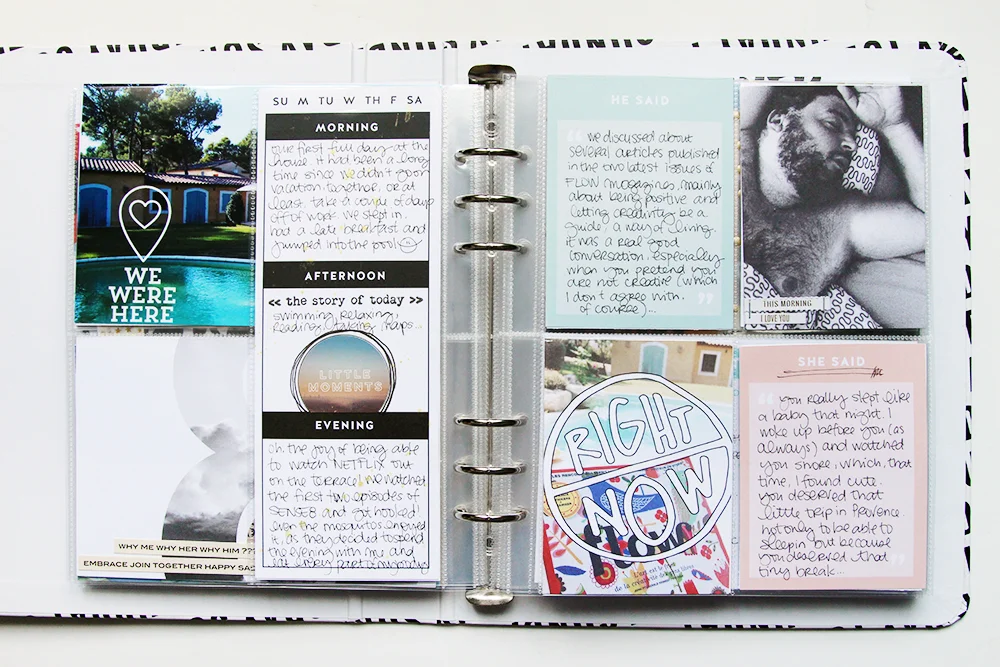 WE
WERE
HERE
WHY ME WHY HER WHY HIM ???
EMBRACE JOIN TOGETHER HAPPY SAD
SU M TU W TH F SA
MORNING
our first full day at the
house. It had been a long
time since we didn't go on
vacation together, or at
least take a couple of days
off of work. We slept in.
had a late breakfast and
jumped into the pool
AFTERNOON
<< the story of today >>
swimming, relaxing,
reading, talking, naps...
LITTLE
MOMENTS
EVENING
oh the joy of being able
to watch NETFLIX out
on the terrace! We watched
the first two episodes of
SENSE8 and got hooked!
even the mosquitos enjoyed
it, as they decided to spend
the evening with me and
eat every part of my body
HE SAID
we discussed about
several articles published
in the two latest issues of
FLOW magazines, mainly
about being positive and
letting creativity be a
guide, a way of living.
it was a real good
conversation. Especially
when you pretend you
are not creative (which
I don't agree with,
of course)...
THIS MORNING
I LOVE YOU
RIGHT
NOW
L'art est le propos
de la créativité
SHE SAID
you really slept like
a baby that night. I
woke up before you (as
always) and watched
you snore, which, that
time, I found cute.
You deserved that
little trip in Provence
not only to be able to
sleep in but because
you deserved that
tiny break...